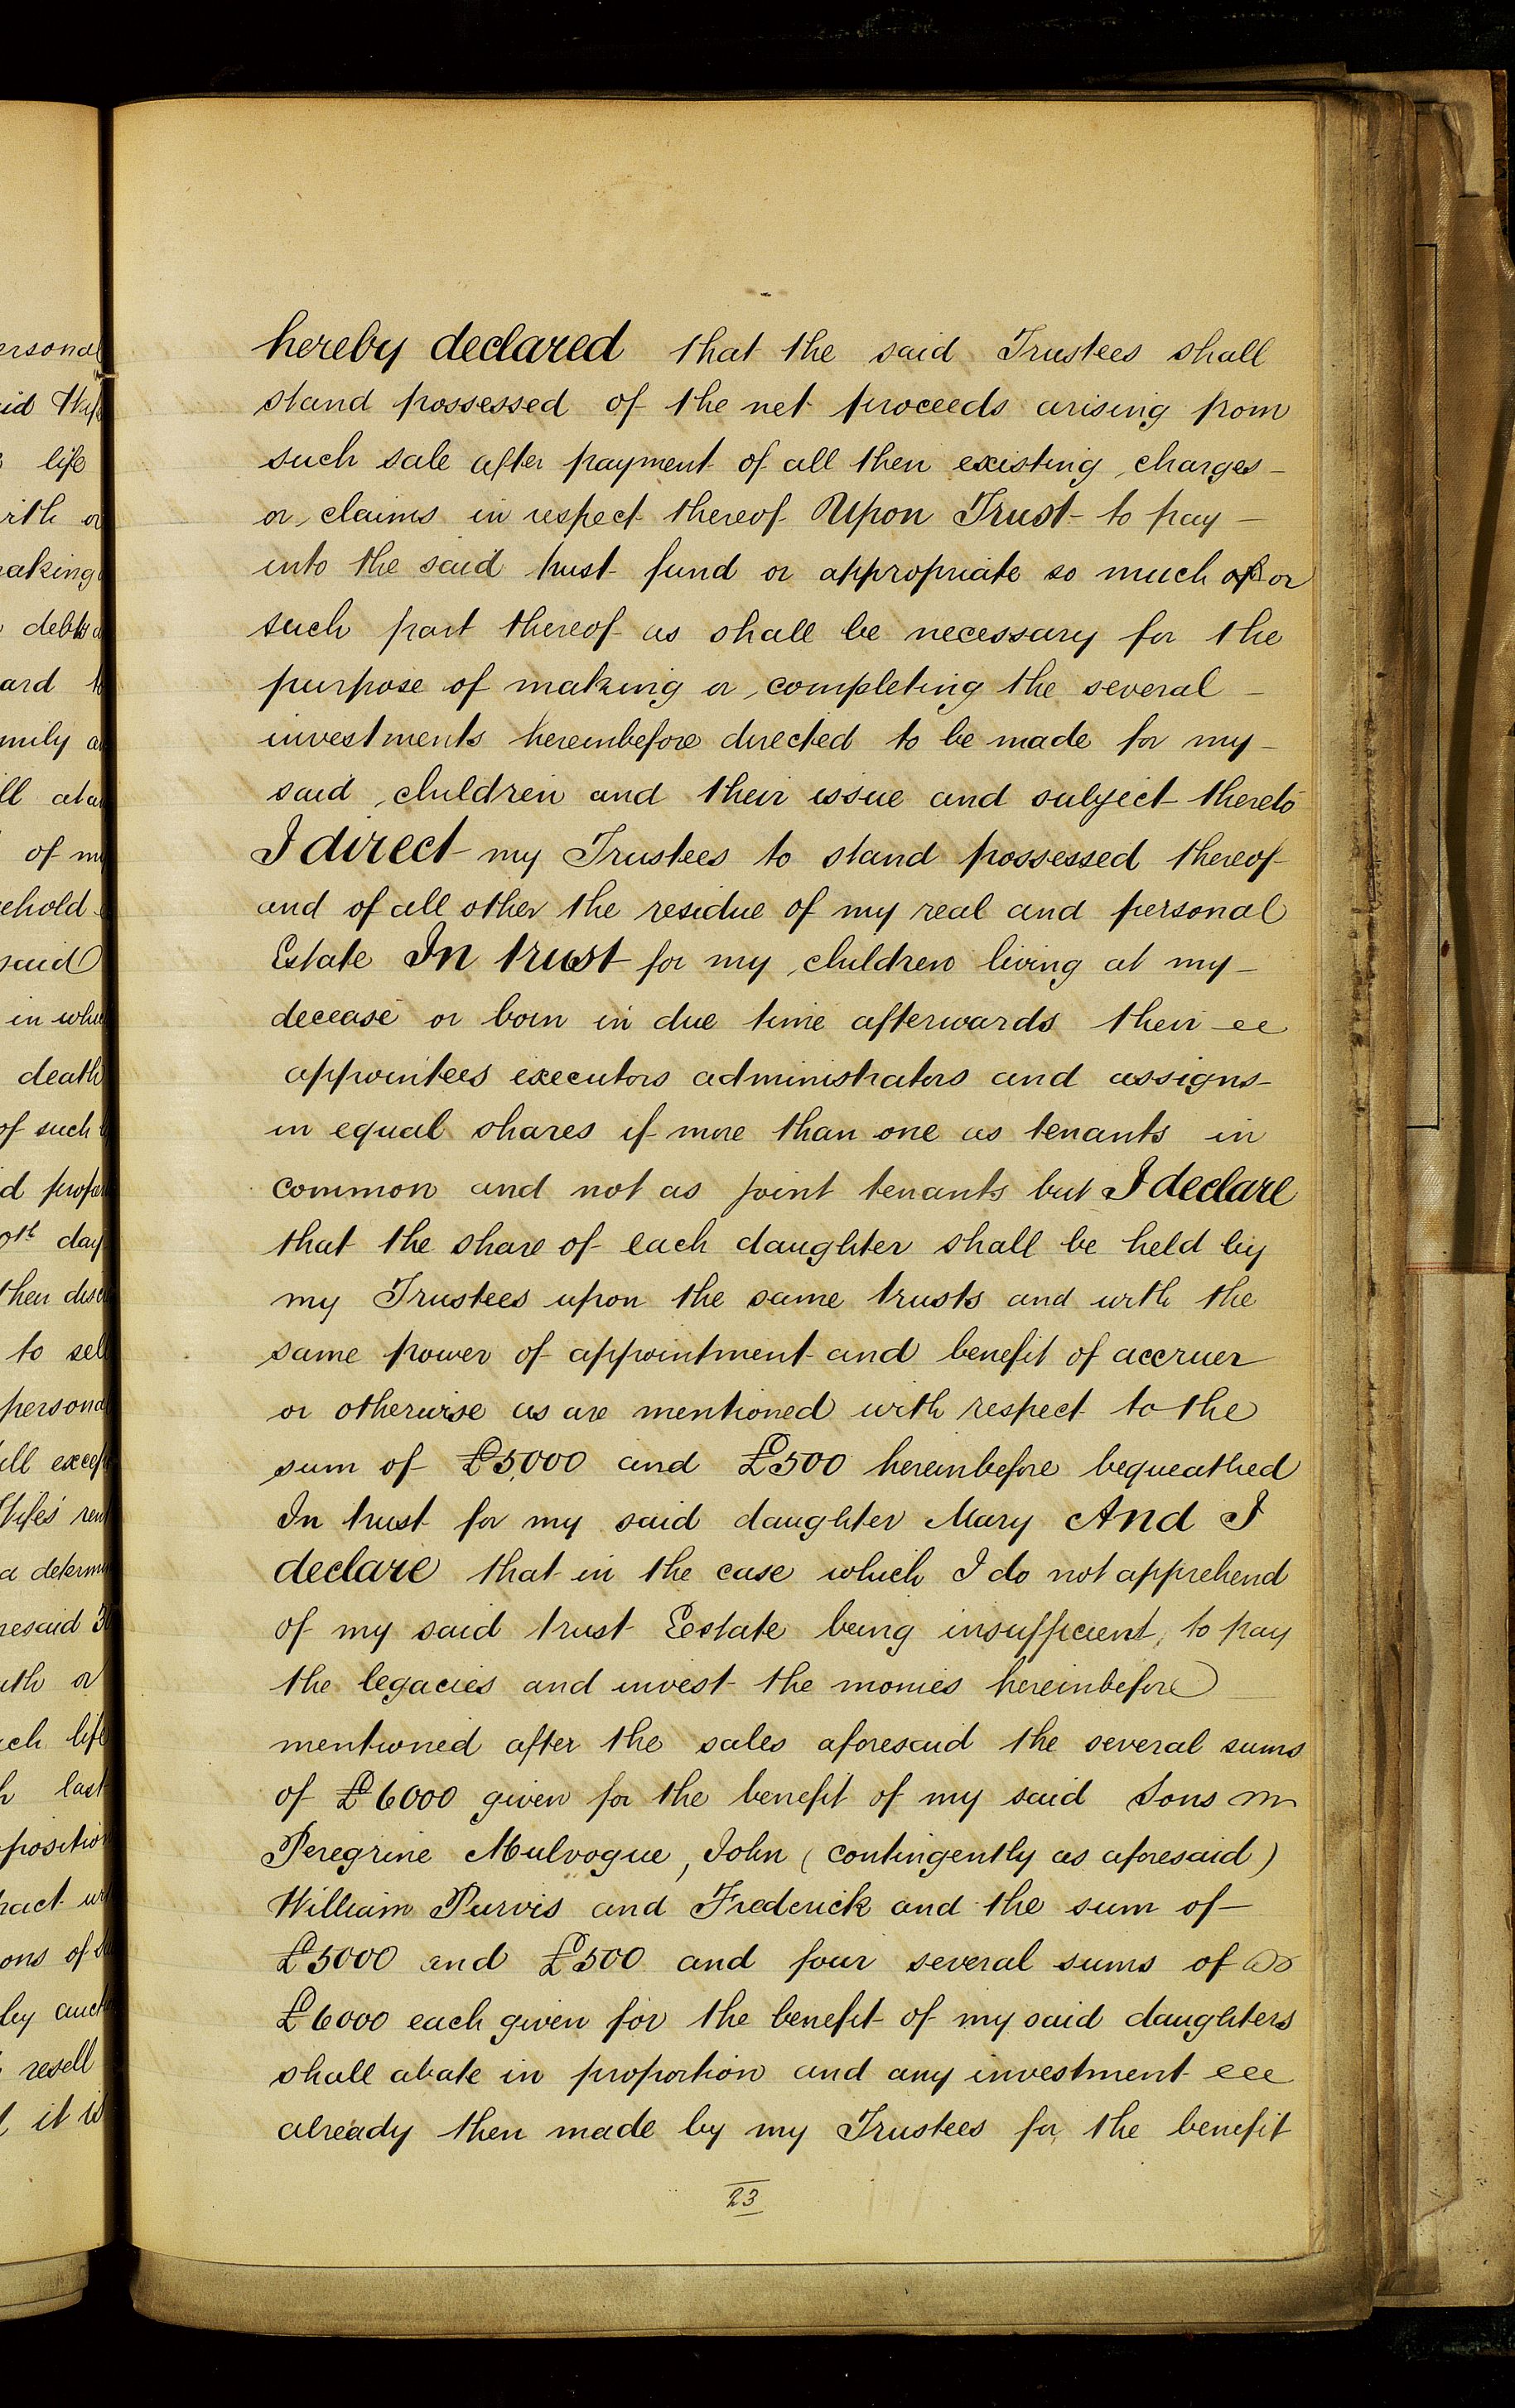 hereby declared that the said Trustees shall
stand possessed of the net proceeds arising from
such sale after payment of all then existing charges
or claims in respect thereof Upon Trust to pay
into the said trust fund or appropriate so much of or
such part thereof as shall be necessary for the
purpose of making or completing the several
investments hereinbefore directed to be made for my
said children and their issue and subject thereto
I direct my Trustees to stand possessed thereof
and of all other the residue of my real and personal
Estate In trust for my children living at my
decease or born in due time afterwards their
appointees executors administrators and assigns
in equal shares if more than one as tenants in
common and not as joint tenants but I declare
that the share of each daughter shall be held by
my Trustees upon the same trusts and with the
same power of appointment and benefit of accruer
or otherwise as are mentioned with respect to the
sum of £5,000 and £500 hereinbefore bequeathed
In trust for my said daughter Mary And I
declare that in the case which I do not apprehend
of my said trust Estate being insufficient, to pay
the legacies and invest the monies hereinbefore
mentioned after the sales aforesaid the several sums
of £6000 given for the benefit of my said Sons
Peregrine Mulvogue, John (contingently as aforesaid)
William Purvis and Frederick and the sum of
£5000 and £500 and four several sums of
£6000 each given for the benefit of my said daughters
shall abate in proportion and any investment
already then made by my Trustees for the benefit
23
ersonal
life
aking
ard
of my
ehold
said
in
death
of such
day
to sell
persona
resell
it is